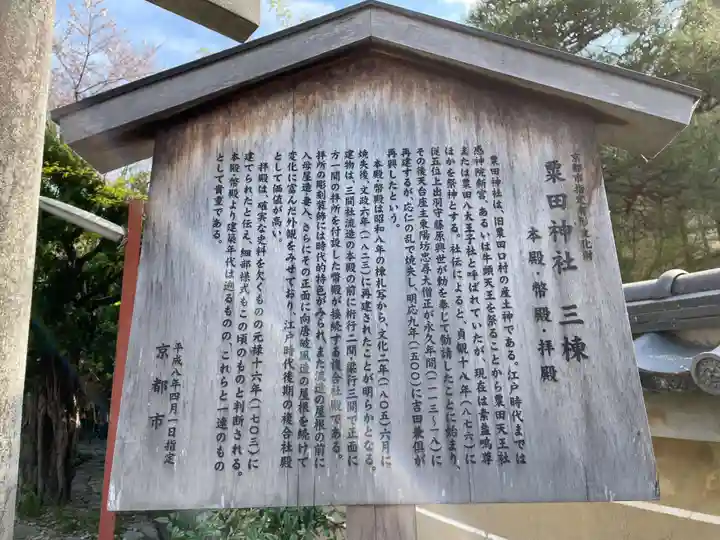 京都市指定有形文化財
粟田神社 三棟
本殿・幣殿・拝殿
粟田神社は、旧粟田口村の産土神である。江戸時代までは
感神院新宮、あるいは牛頭天王を祭ることから粟田天王社
または粟田八大王子社と呼ばれていたが、現在は素盞嗚尊
ほかを祭神とする。社伝によると、貞観十八年(八七六)に
従五位上出羽守藤原興世が勅を奉じて勧請したことに始まり、
その後天台座主東陽坊忠尋大僧正が永久年間(一一一三-一八)に
再建するが、応仁の乱で焼失し、明応九年(一五〇〇)に吉田兼倶が
再興したという。
本殿・幣殿は昭和八年の棟札写から、文化二年(一八〇五)六月に
焼失後、文政六年(一八二三)に再建されたことが明らかとなる。
建物は、三間社流造の本殿の前に桁行二間・梁行三間で正面に
方一間の拝所を付設した幣殿が接続する複合社殿である。
拝所の彫刻装飾には時代的特色がみられ、また流造の屋根の前に
入母屋造・妻入、さらにその正面に向唐破風造の屋根を続けて
変化に富んだ外観をみせており、江戸時代後期の複合社殿
として価値が高い。
拝殿は、確実な史料を欠くものの元禄十六年(一七〇三)に
建てられたと伝え、細部様式もこの頃のものと判断される。
本殿・幣殿より建築年代は遡るものの、これらと一連のもの
として貴重である。
平成八年四月一日指定
京都市